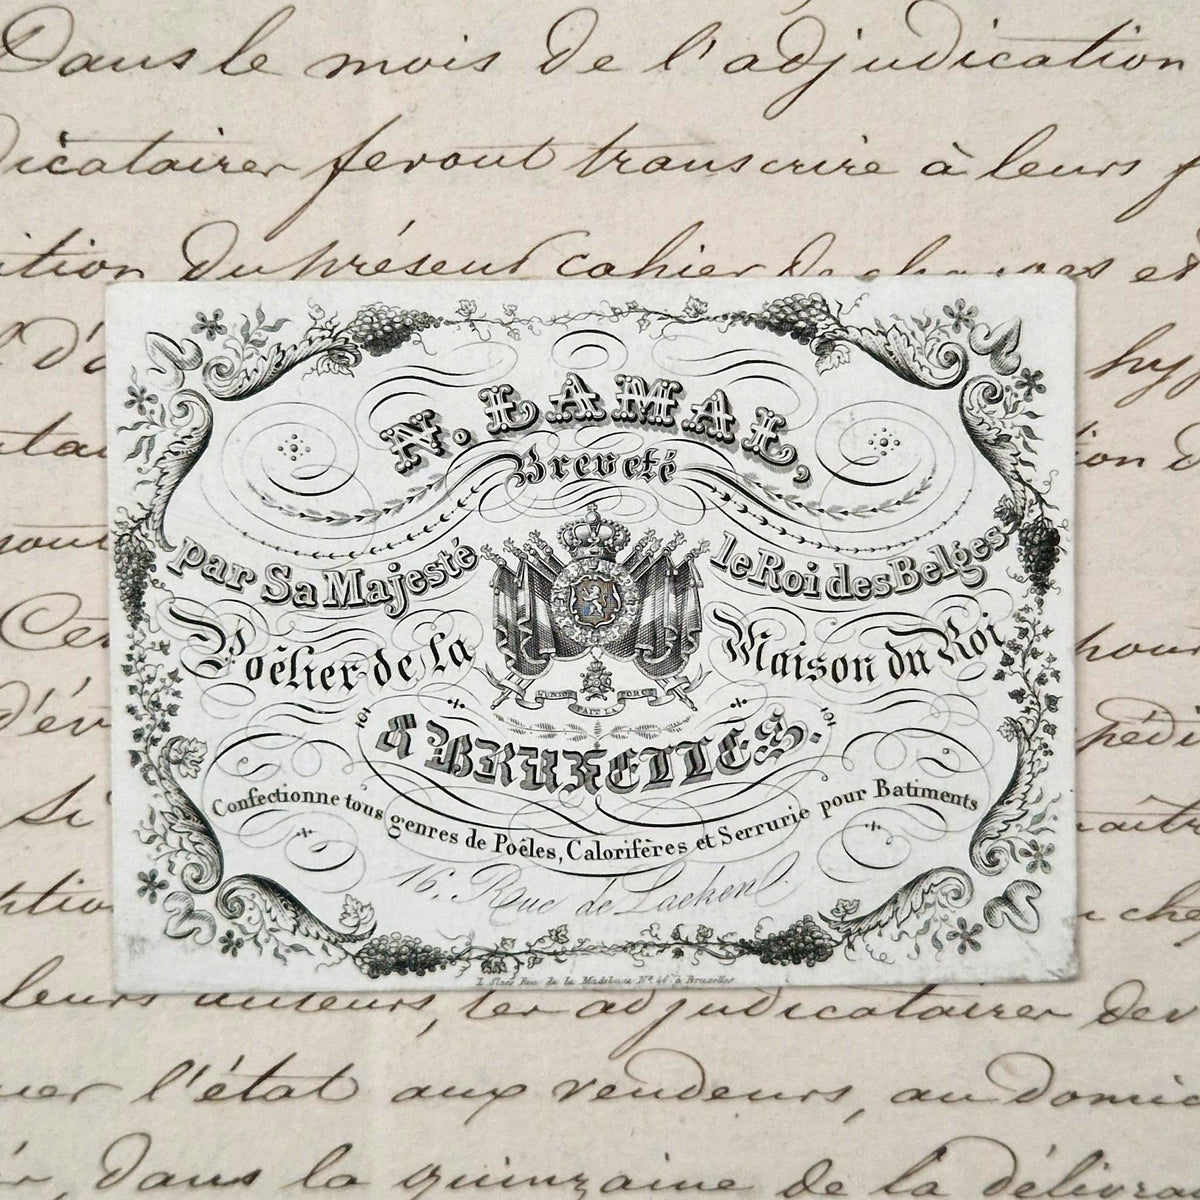 Dans le mois de l'adjudication
dicataires feront transcrire à leurs f
ition du présent cahier de charges et
l'd'a
hyp
on d
sont
Cer
pour
d'év
pédi
Si
aît
che
N. LAMAL,
Breveté
par Sa Majesté le Roi des Belges
Poêlier de la Maison du Roi
L'UNION FAIT LA FORCE
à BRUXELLES.
Confectionne tous genres de Poêles, Calorifères et Serrurie pour Batiments
16. Rue de Laeken.
Rue de la Madelaine Nº 46. à Bruxelles
leurs auteurs, les adjudicataires dev
uer l'état aux vendeurs, au domic
dans la quinzaine de la délivra